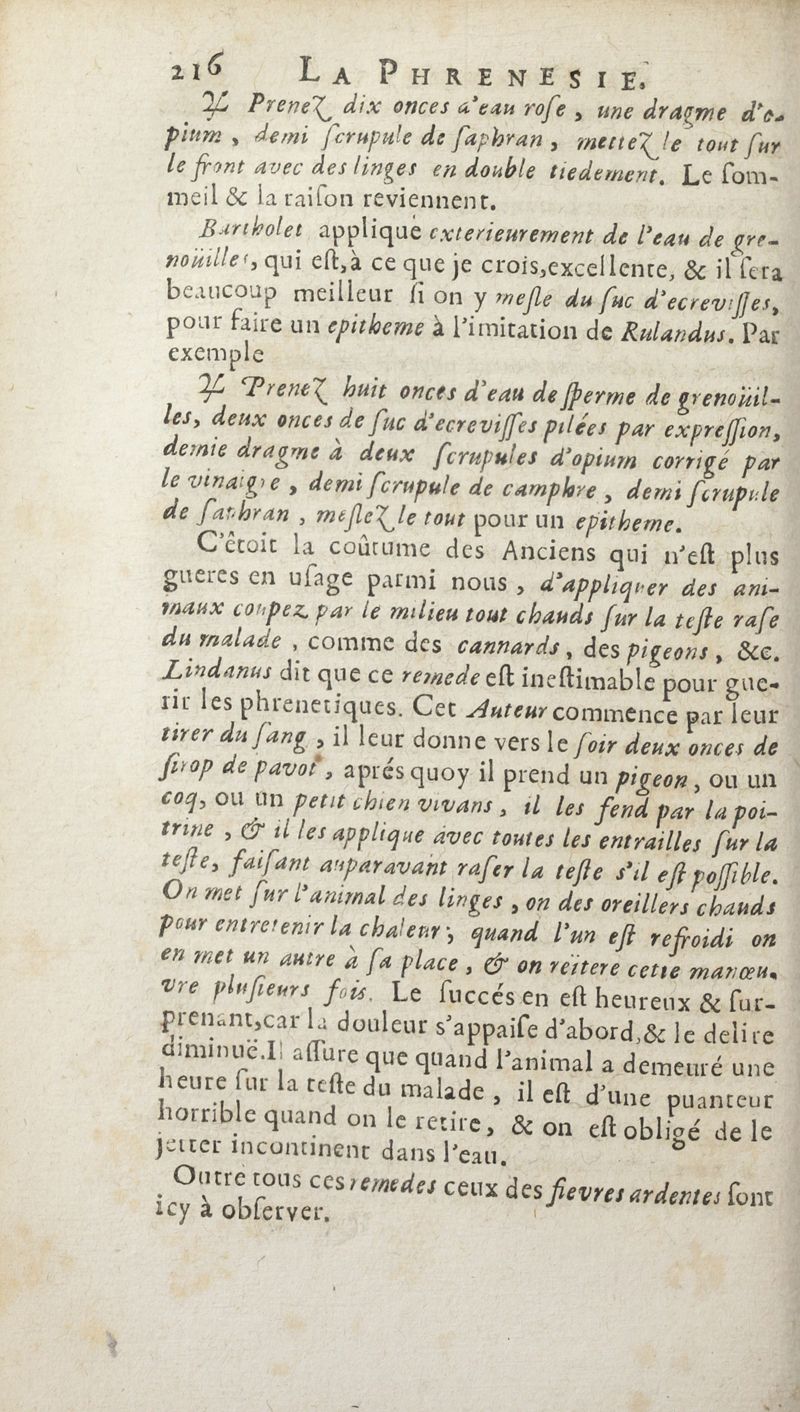 216 LA PHRENESIE.
℞ Prenez dix onces d'eau rose , une dragme d'o-
pium , demi scrupule de saphran , mettez le tout sur
le front avec des linges en double tiedement. Le som-
meil & la raison reviennent.
Bartholet applique exterieurement de l'eau de gre-
noüilles, qui est,à ce que je crois,excellente, & il sera
beaucoup meilleur si on y mesle du suc d'ecrevisses,
pour faire un epitheme à l'imitation de Rulandus. Par
exemple
℞ Prenez huit onces d'eau de sperme de grenoüil-
les, deux onces de suc d'ecrevisses pilées par expression,
demie dragme à deux scrupules d'opium corrigé par
le vinaigre , demi scrupule de camphre , demi scrupule
de saphran , meslez le tout pour un epitheme.
C'étoit la coûtume des Anciens qui n'est plus
gueres en usage parmi nous , d'appliquer des ani-
maux coupez par le milieu tout chauds sur la teste rase
du malade , comme des cannards, des pigeons , &c.
Lindanus dit que ce remede est inestimable pour gue-
rir les phrenetiques. Cet Auteur commence par leur
tirer du sang , il leur donne vers le soir deux onces de
sirop de pavot , aprés quoy il prend un pigeon , ou un
coq, ou un petit chien vivans , il les fend par la poi-
trine , & il les applique avec toutes les entrailles sur la
teste, faisant auparavant raser la teste s'il est possible.
On met sur l'animal des linges , on des oreillers chauds
pour entretenir la chaleur ; quand l'un est refroidi on
en met un autre à sa place , & on reïtere cette manœu-
vre plusieurs fois. Le succés en est heureux & sur-
prenant,car la douleur s'appaise d'abord,& le delire
diminuë.Il assure que quand l'animal a demeuré une
heure sur la teste du malade , il est d'une puanteur
horrible quand on le retire, & on est obligé de le
jetter incontinent dans l'eau.
Outre tous ces remedes ceux des fievres ardentes sont
icy à observer.